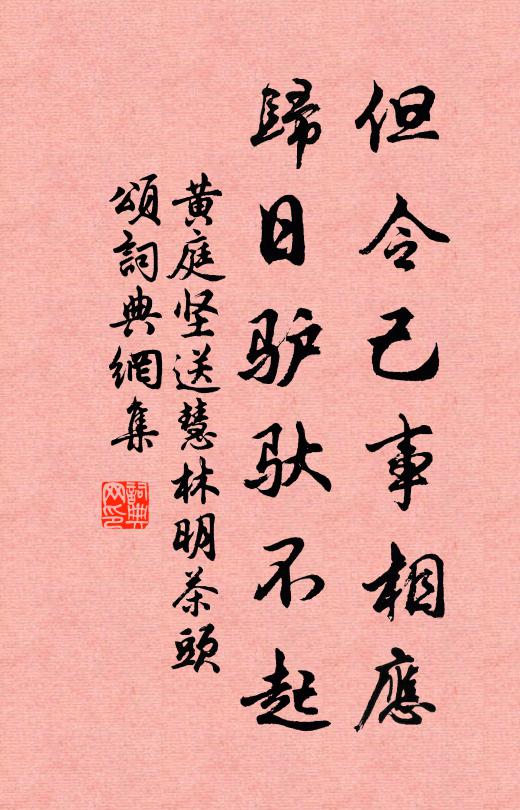 但令己事相應
歸日驴驮不起
黄庭坚送慧林明茶頭
頌詞典網集
詞典
网印